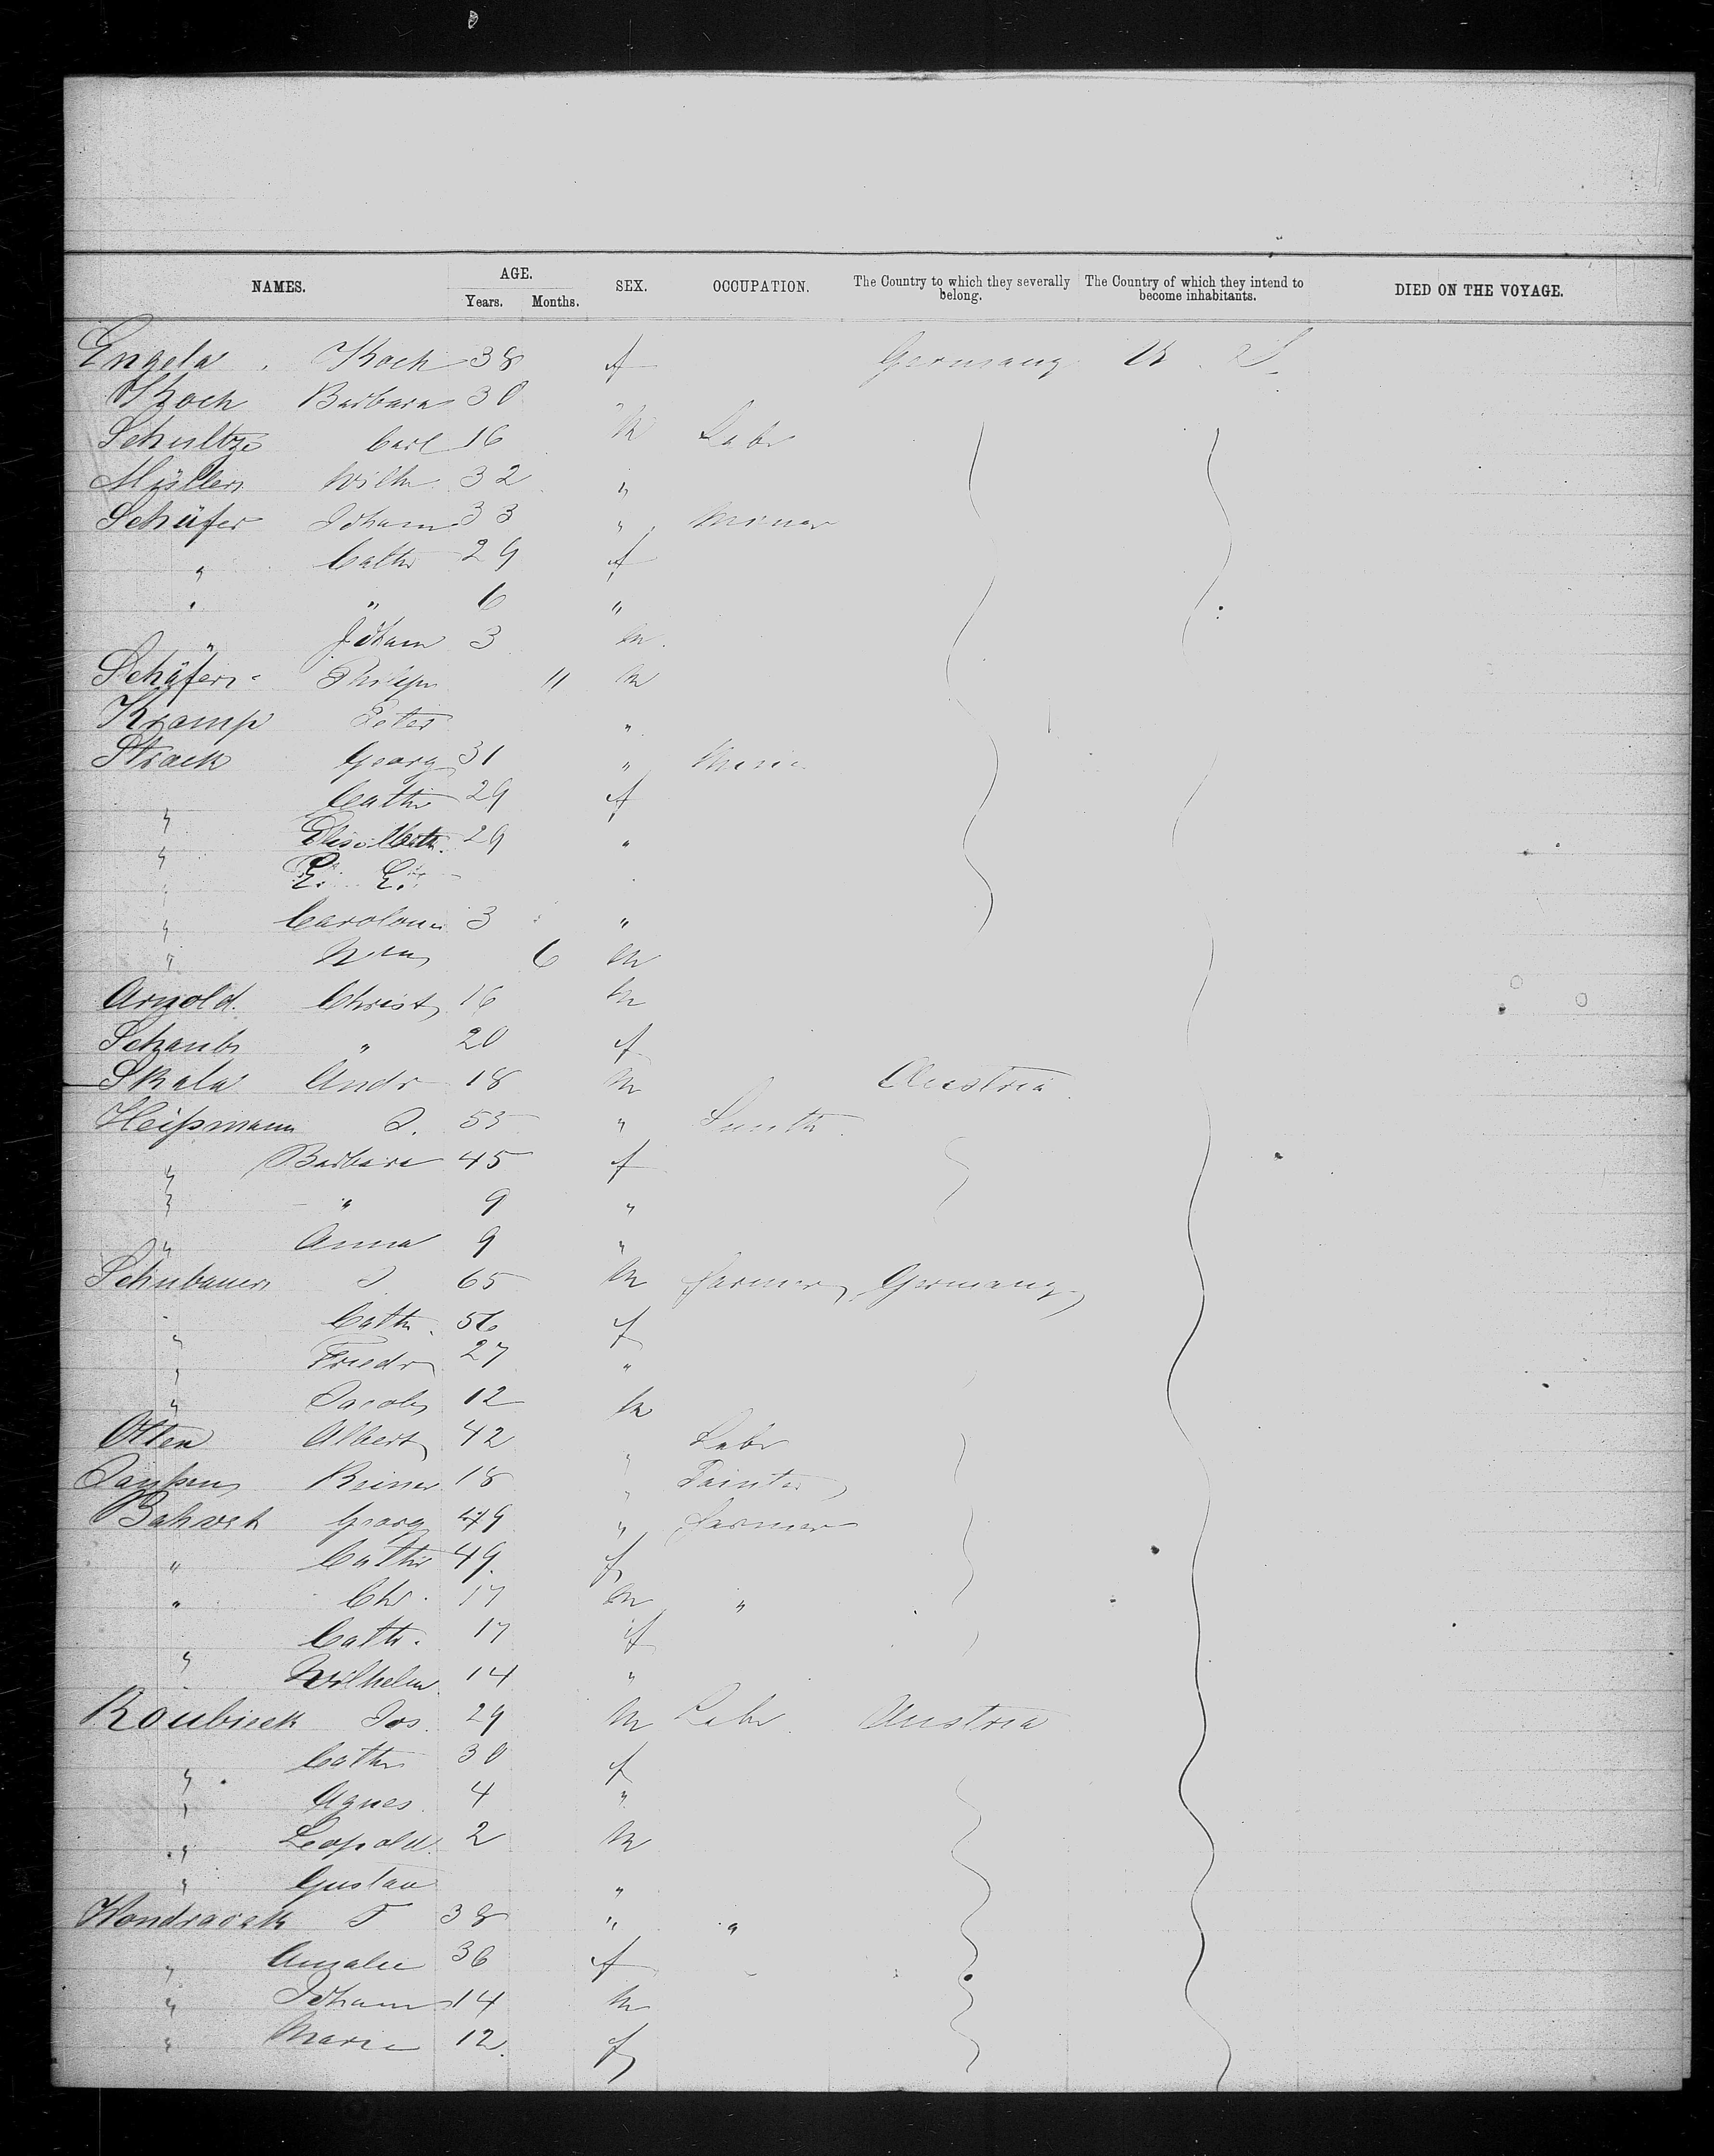 NAMES. AGE. SEX. OCCUPATION. The Country to which they severally belong. The Country of which they intend to become inhabitants. DIED ON THE VOYAGE.
Years. Months.
Engela Koch 38 f Germany U. S.
Koch Barbara 30
Schultze Carl 16 m Labr
Müller Wilh. 32 "
Schäfer Johann 33 " Miner
" Cath 29 f
" " 6 "
" Johann 3 m
Schäfer Philipp 11 m
Kramp Peter "
Strack Georg 31 "
" Cath 29 f
" 29 "
"
" Carolonu 3 "
" 6 m
Arnold Christ 16 m
Schaub " 20 f
Skala Andr 18 m Austria
Heißmann J. 55 " Smith
" Barbara 45 f
" " 9 "
" Anna 9 "
Schubauer J 65 m farmer Germany
" Cath. 56 f
" Friedr 27 "
" Jacob 12 m
Otten Albert 42 " Labr
Janßen Reiner 18 " Painter
Georg 49 " farmer
" Cathr 49. f
" Chr. 17 m "
" Cath. 17 f
Wilhelm. 14 "
Roubicek Jos. 29 m Labr Austria
" Cath 30 f
" Agnes 4 "
" Leopold 2 m
" Gustav "
Wondracek F 38 " "
" Amalie 36 f
" Johann 14 m
" Marie 12. f